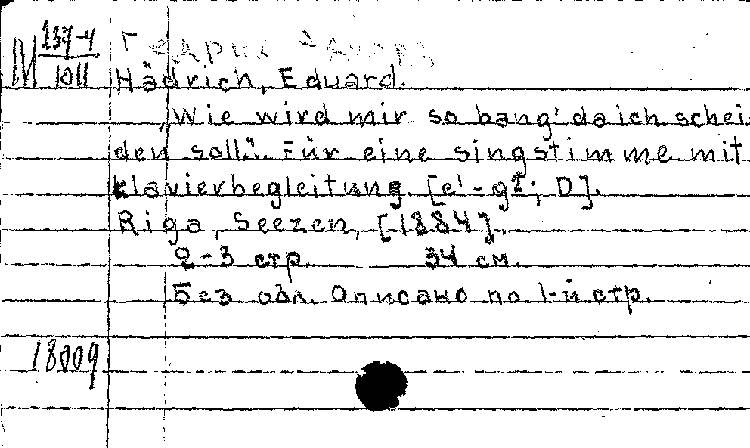 М 137-4
1011
Гедрих Эдуард
Hädrich, Eduard.
„Wie wird mir so bang' da ich schei
den soll". Für eine singstimme mit
klavierbegleitung. [e¹-g²; D].
Riga, Seezen, [1884].
2-3 стр. 34 см.
Без обл. Описано по 1-й стр.
18009